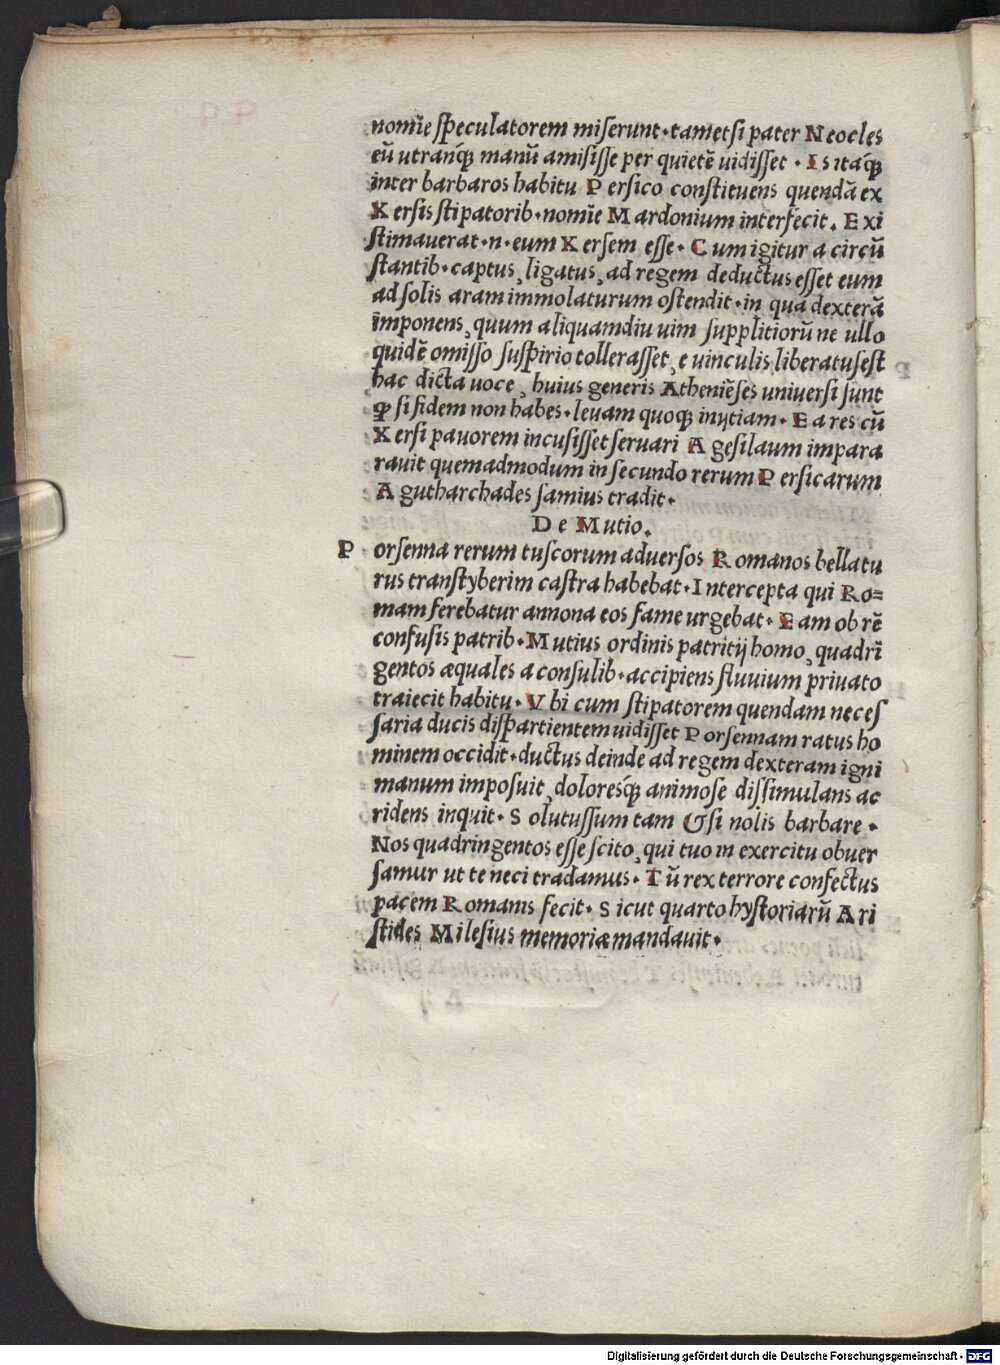 nomīe speculatorem miserunt·tametsi pater Neocles
eū utranq́ꝫ manū amisisse per quietē uidisset · Is itaq́ꝫ
inter barbaros habitu Persico constituens quendā ex
Xersis stipatorib·nomīe Mardonium interfecit. Exi
stimauerat·n·eum Xersem esse· Cum igitur a circū
stantib·captus, ligatus, ad regem deductus esset eum
ad solis aram immolaturum ostendit·in qua dexterā
īmponens, quum aliquamdiu uim supplitiorū ne ullo
quidē omisso suspirio tollerasset, e uinculis liberatus est
hac dicta uoce, huius generis Atheniēses universi sunt
ꝙ si fidem non habes·leuam quoqꝫ inijtiam· Ea res cū
Xersi pauorem incusisset seruari Agesilaum impara
rauit quemadmodum in secundo rerum Persicarum
Agutharchades samius tradit·
De Mutio.
Porsenna rerum tuscorum adversos Romanos bellatu
rus transtyberim castra habebat·Intercepta qui Ro=
mam ferebatur annona eos fame urgebat· Eam ob rē
confusis patrib·Mutius ordinis patritij homo, quadrī
gentos æquales a consulib·accipiens fluuium priuato
traiecit habitu· Vbi cum stipatorem quendam neces
saria ducis dispartientem uidisset Porsennam ratus ho
minem occidit·ductus deinde ad regem dexteram igni
manum imposuit, doloresq́ꝫ animose dissimulans ac
ridens inquit· Solutussum tam & si nolis barbare ·
Nos quadringentos esse scito, qui tuo in exercitu obuer
samur ut te neci tradamus· Tū rex terrore confectus
pacem Romanis fecit· Sicut quarto hystoriarū Ari
stides Milesius memoriæ mandauit·
Digitalisierung gefördert durch die Deutsche Forschungsgemeinschaft - DFG